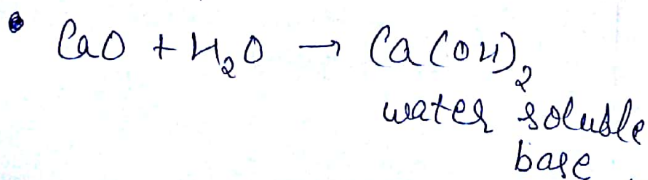 • CaO + H₂O → Ca(OH)₂
water soluble
base